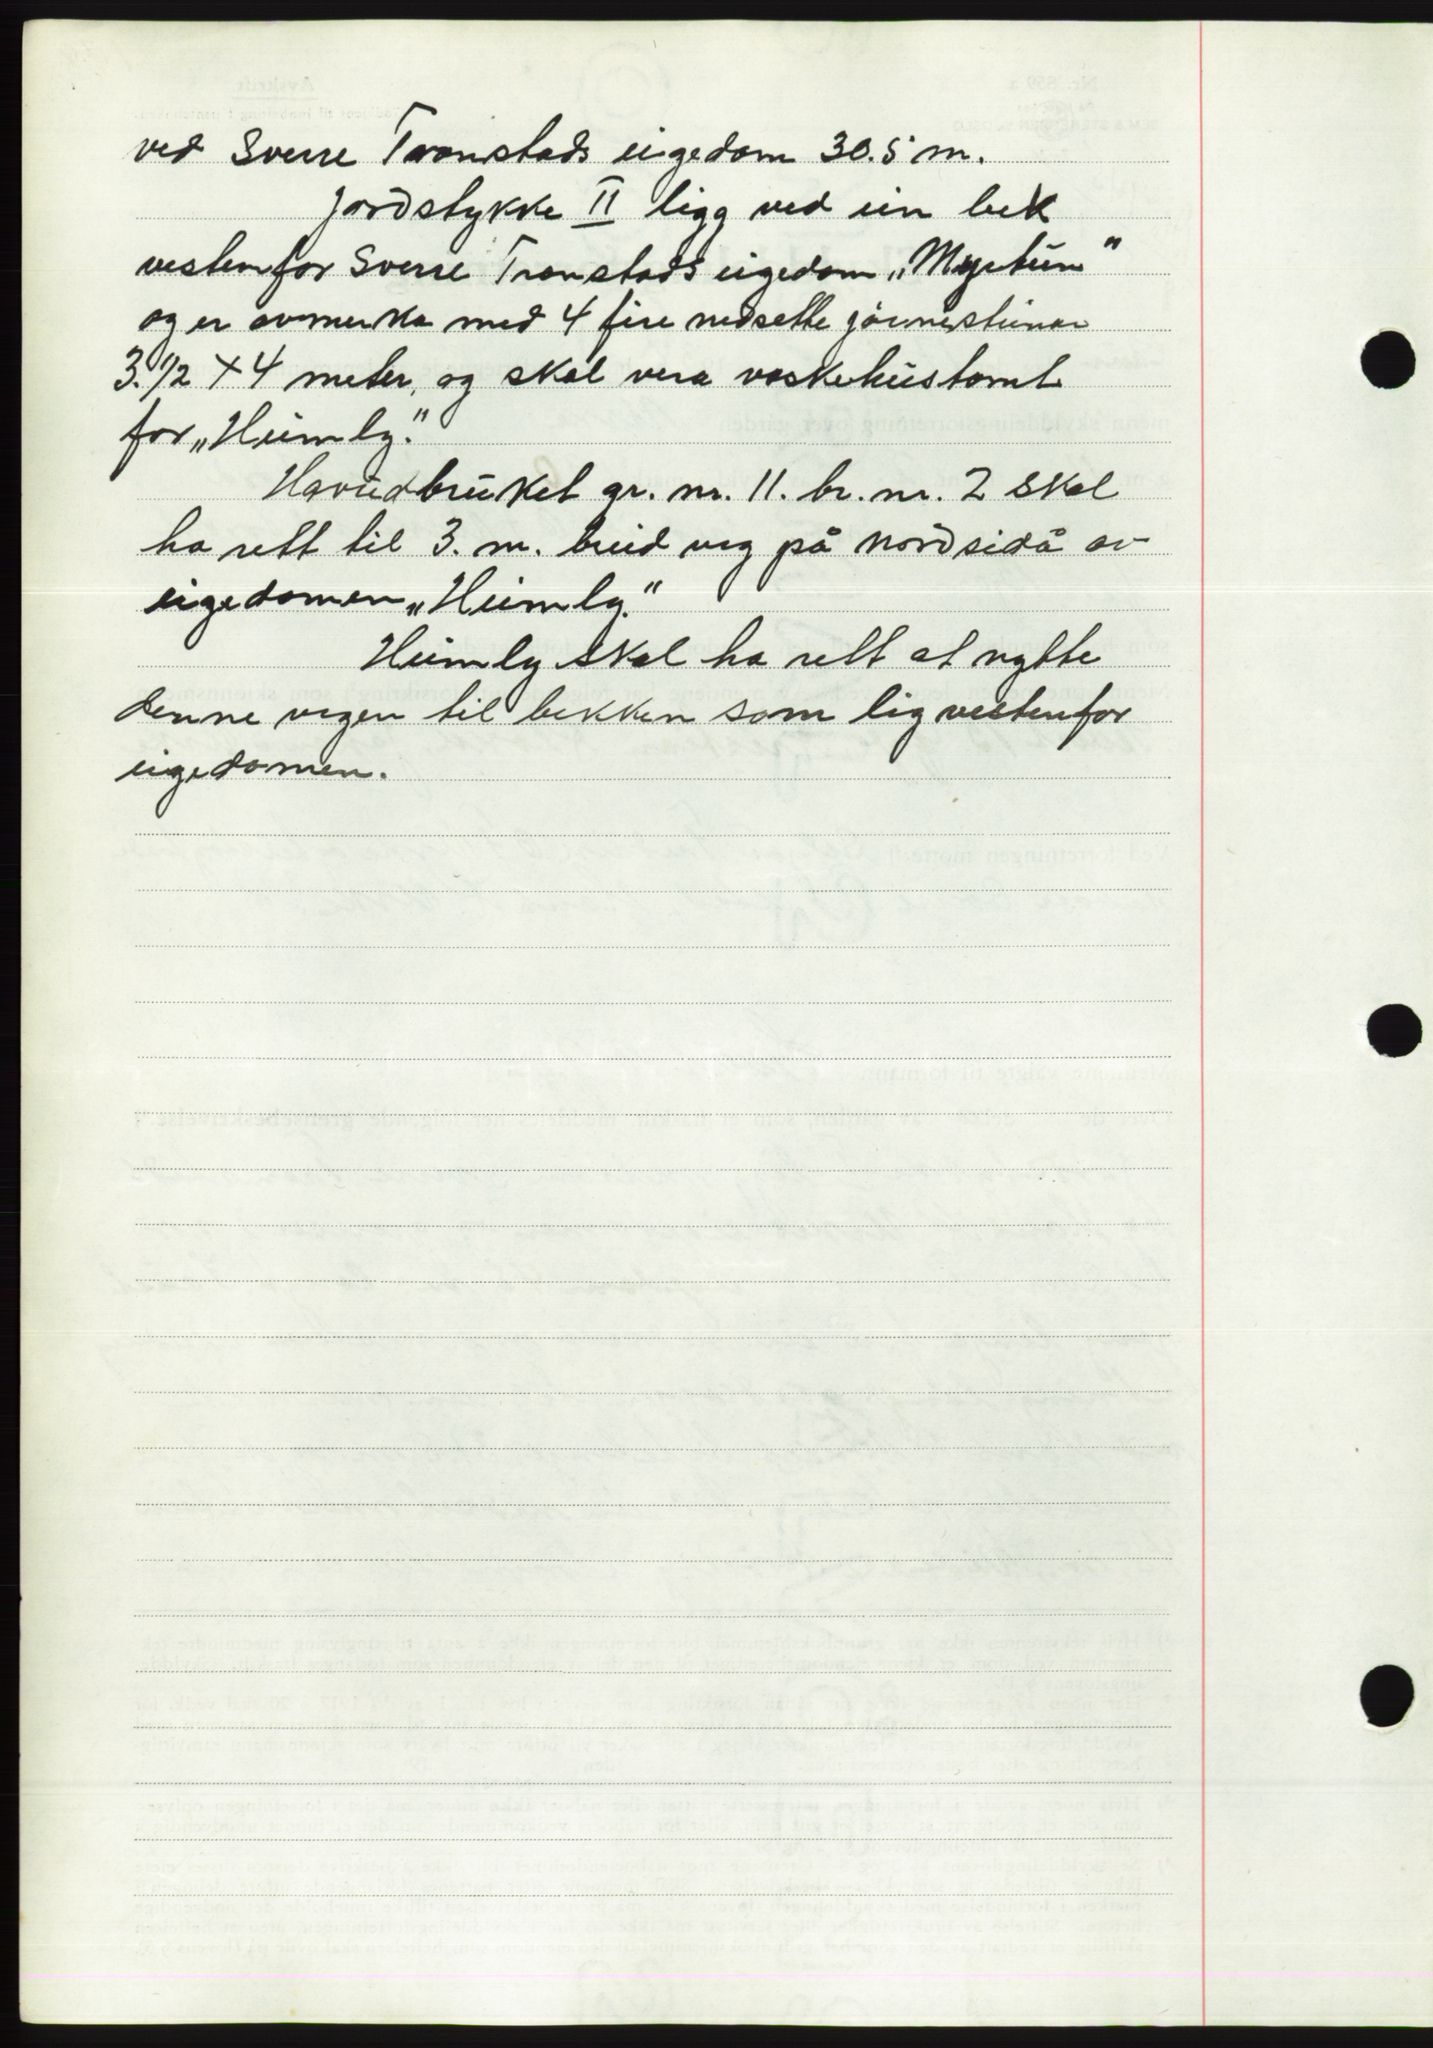 ved Sverre Tronstads eigedom 30.5 m.
Jordstykke II ligg ved ein bekk
vestenfor Sverre Tronstads eigedom „Myrtun"
og er avmerka med 4 fire nedsette jarnsteinar
3.1/2 + 4 meter, og skal vera vaskehustomt
for „Heimly."
Hovudbruket gr. nr. 11. br. nr. 2 skal
ha rett til 3. m. breid veg på nordsida av
eigedomen „Heimly."
Heimly skal ha rett at nytte
denne vegen til bekken som lig vestenfor
eigedomen.